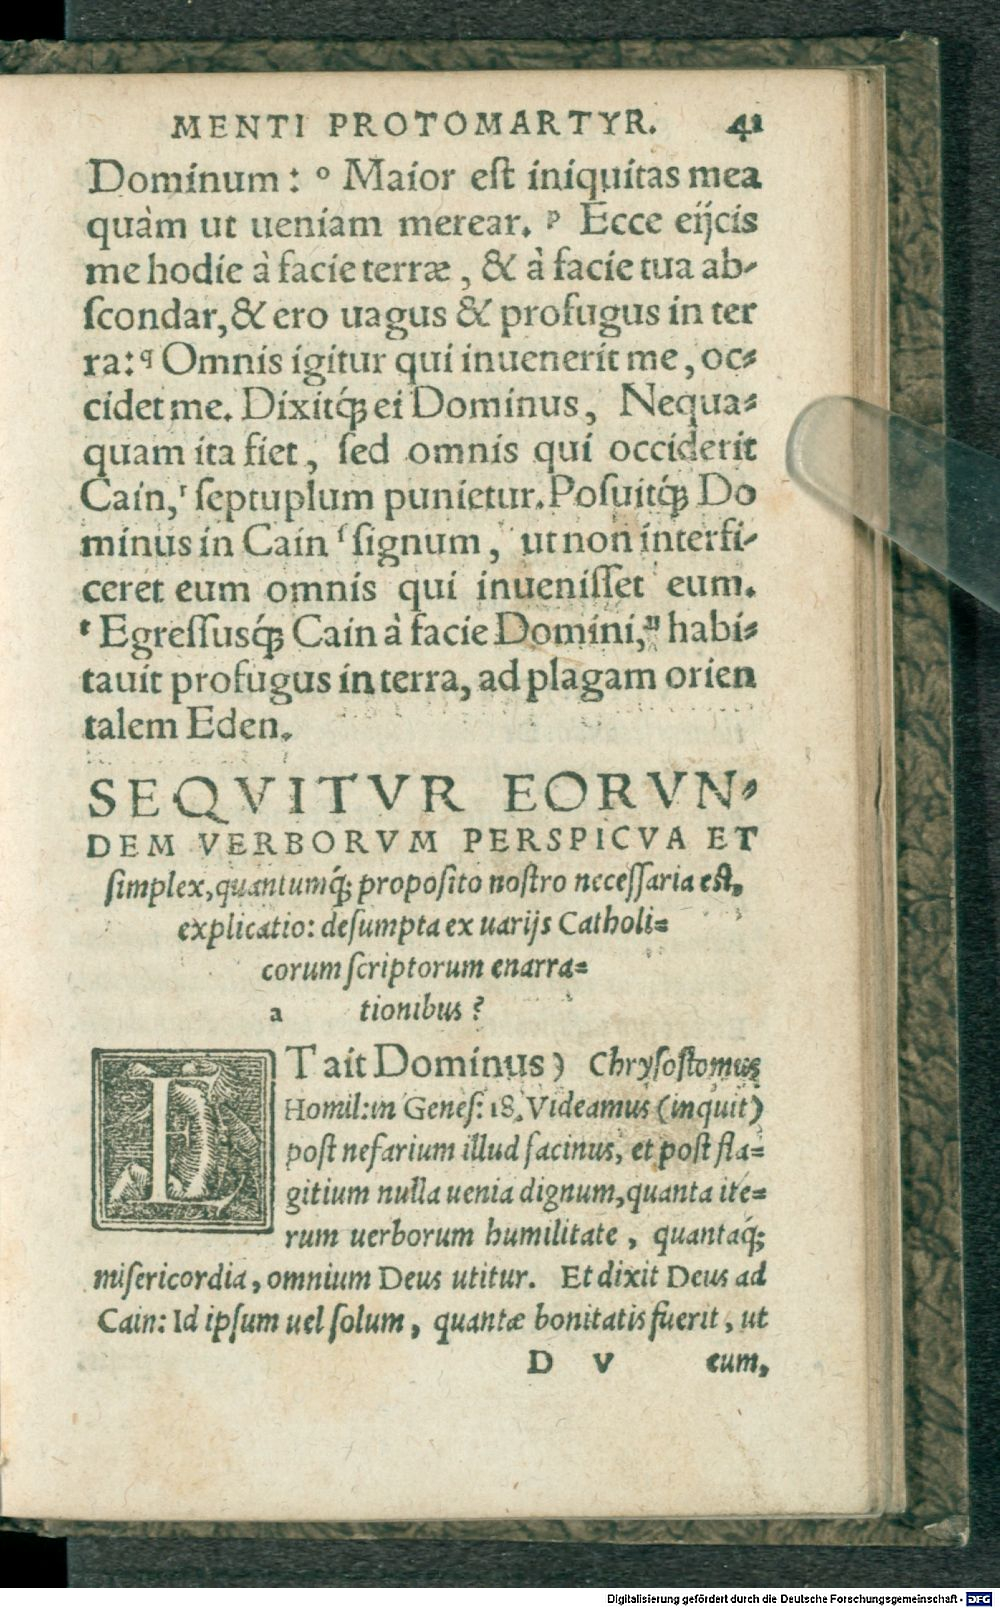 MENTI PROTOMARTYR. 41
Dominum: ᵒ Maior est iniquitas mea
quàm ut ueniam merear. ᵖ Ecce eijcis
me hodie à facie terræ, & à facie tua ab-
scondar, & ero uagus & profugus in ter
ra: ᑫ Omnis igitur qui inuenerit me, oc-
cidet me. Dixitq́; ei Dominus, Nequa-
quam ita fiet, sed omnis qui occiderit
Cain, ʳ septuplum punietur. Posuitq́; Do
minus in Cain ſ signum, ut non interfi-
ceret eum omnis qui inuenisset eum.
ᵗ Egressusq́; Cain à facie Domini, ᵘ habi-
tauit profugus in terra, ad plagam orien
talem Eden.
SEQVITVR EORVN-
DEM VERBORVM PERSPICVA ET
simplex, quantumq́; proposito nostro necessaria est,
explicatio: desumpta ex uarijs Catholi-
corum scriptorum enarra-
a tionibus?
ET ait Dominus) Chrysostomus
Homil: in Genes: 18. Videamus (inquit)
post nefarium illud facinus, et post fla-
gitium nulla uenia dignum, quanta ite-
rum uerborum humilitate, quantaq́;
misericordia, omnium Deus utitur. Et dixit Deus ad
Cain: Id ipsum uel solum, quantæ bonitatis fuerit, ut
D V cum,
Digitalisierung gefördert durch die Deutsche Forschungsgemeinschaft - DFG